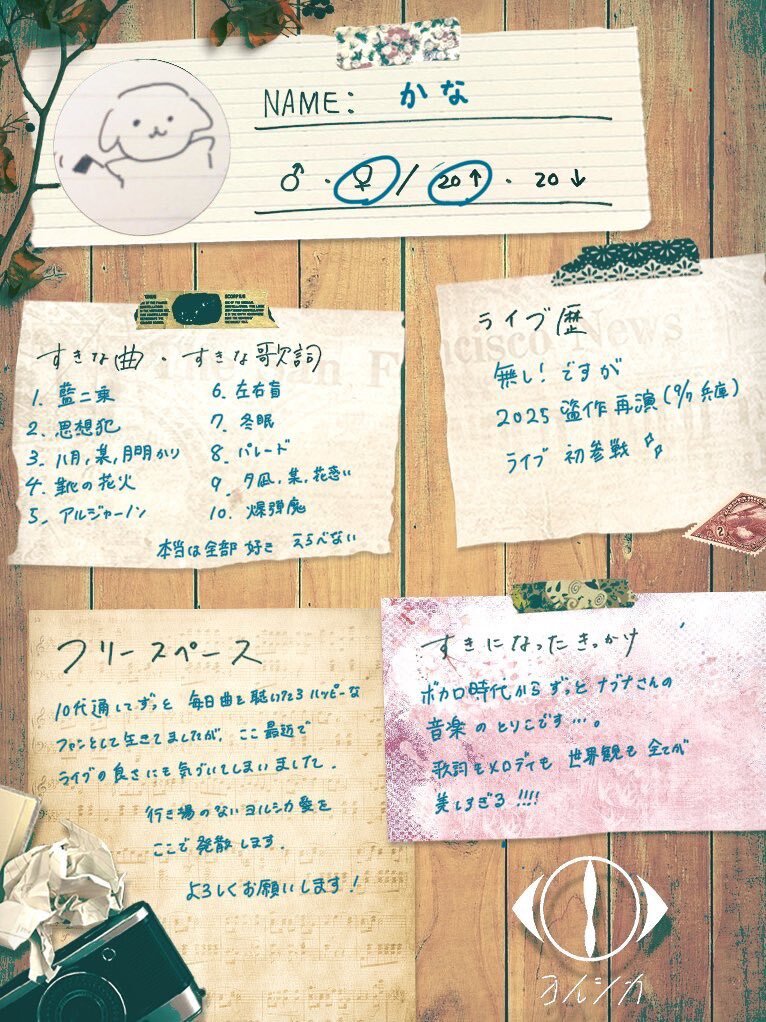 NAME: かな
♂・♀/20↑・20↓
すきな曲・すきな歌詞
1. 藍二乗
2. 思想犯
3. 八月,某,月明かり
4. 靴の花火
5. アルジャーノン
6. 左右盲
7. 冬眠
8. パレード
9. 夕凪,某,花惑い
10. 爆弾魔
本当は全部好き えらべない
ライブ歴
無し!ですが
2025 盗作再演(9/7 兵庫)
ライブ 初参戦
フリースペース
10代通してずっと 毎日曲を聴いたらハッピーな
ファンとして生きてましたが、ここ最近で
ライブの良さにも気づいてしまいました.
行き場のないヨルシカ愛を
ここで発散します.
よろしくお願いします!
すきになったきっかけ
ボカロ時代からずっとナブナさんの
音楽のとりこです….
歌詞もメロディも 世界観も 全てが
美しすぎる !!!!
ヨルシカ